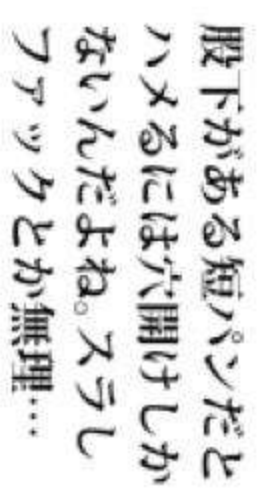 股下がある短パンだと
ハメるには穴開けしか
ないんだよね。スラし
ファックとか無理…